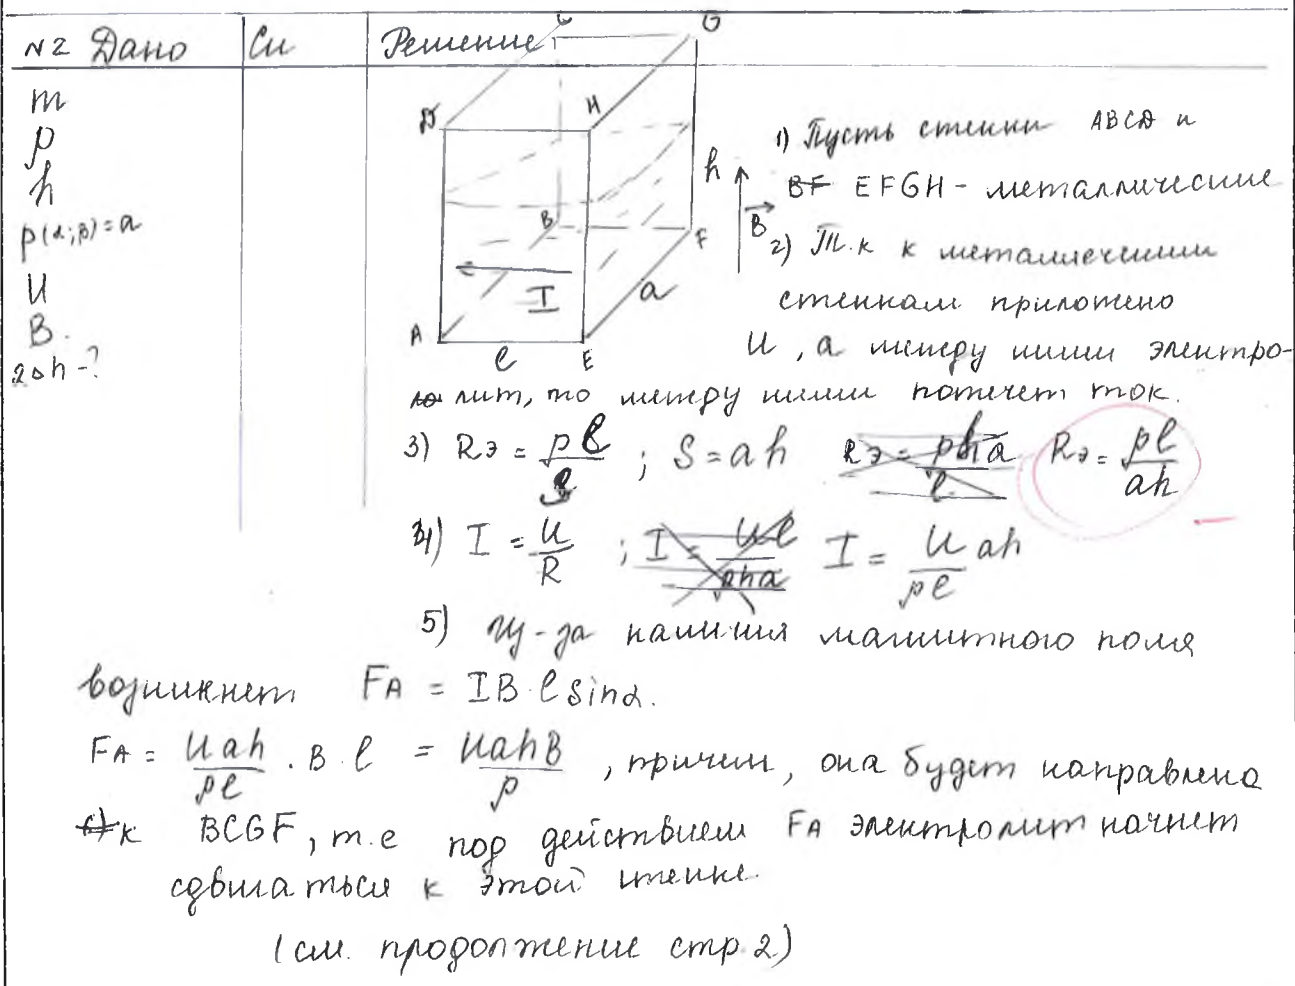 N2 Дано Си Решение:
m
ρ
h
ρ(α;β)=a
U
B.
2Δh-?
C G
D H
B F
A E
I
l
a
h
B
1) Пусть стенки ABCD и
EFGH - металлические
2) Т.к к металлическим
стенкам приложено
U, а между ними электро-
лит, то между ними потечет ток.
3) Rэ = ρl/S ; S = ah Rэ = ρha/l Rэ = ρl/ah
4) I = U/R ; I = Ul/ρha I = U/ρl ah
5) Из-за наличия магнитного поля
возникнет FA = IB·l sinα.
FA = Uah/ρl · B·l = UahB/ρ , причем, она будет направлена
к BCGF, т.е под действием FA электролит начнет
сдвигаться к этой стенке.
(см. продолжение стр 2)